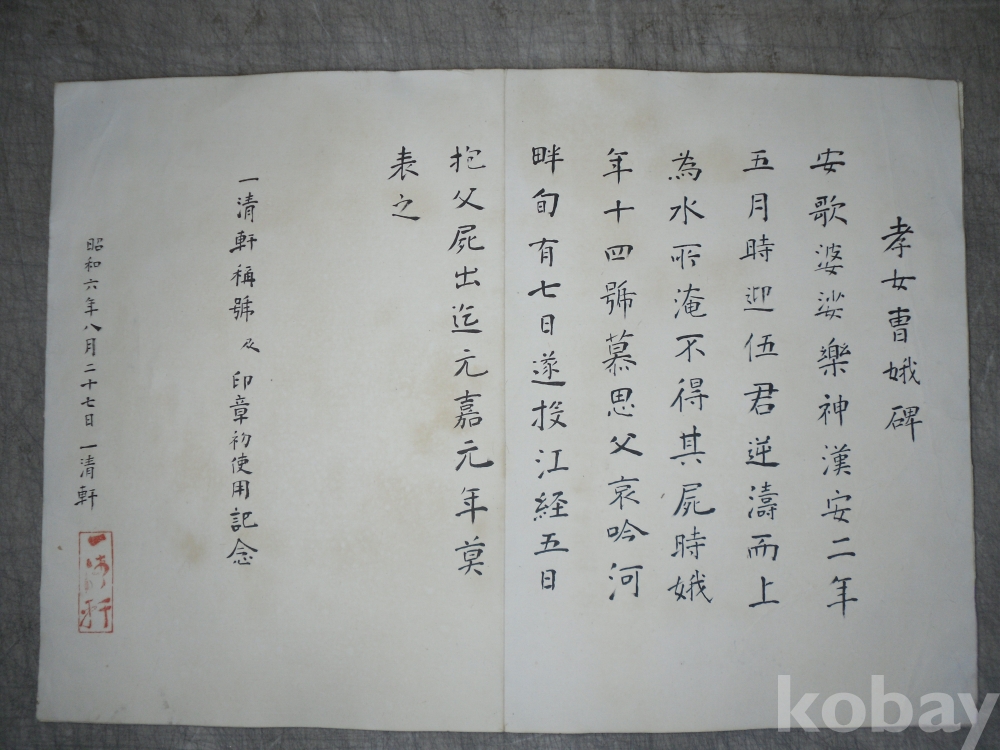 孝女曹娥碑
安歌婆娑樂神漢安二年
五月時迎伍君逆濤而上
為水所淹不得其屍時娥
年十四號慕思父哀吟河
畔旬有七日遂投江経五日
抱父屍出迄元嘉元年莫
表之
一清軒稱號及印章初使用記念
昭和六年八月二十七日一清軒
一清軒
kobay